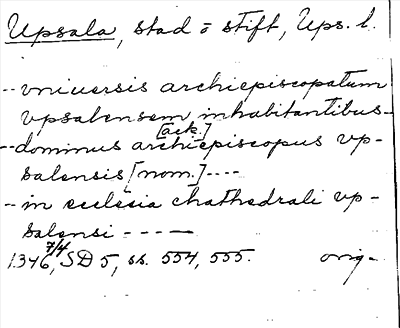 Upsala, stad o stift, Ups. l.
-- vniuersis archiepiscopatum
vpsalensem inhabitantibus -
[ack.]
-- dominus archiepiscopus vp-
salensis [nom.] ----
-- in ecclesia chathedrali vp-
salensi ----
1346 7/4, SD 5, ss. 554, 555. orig.